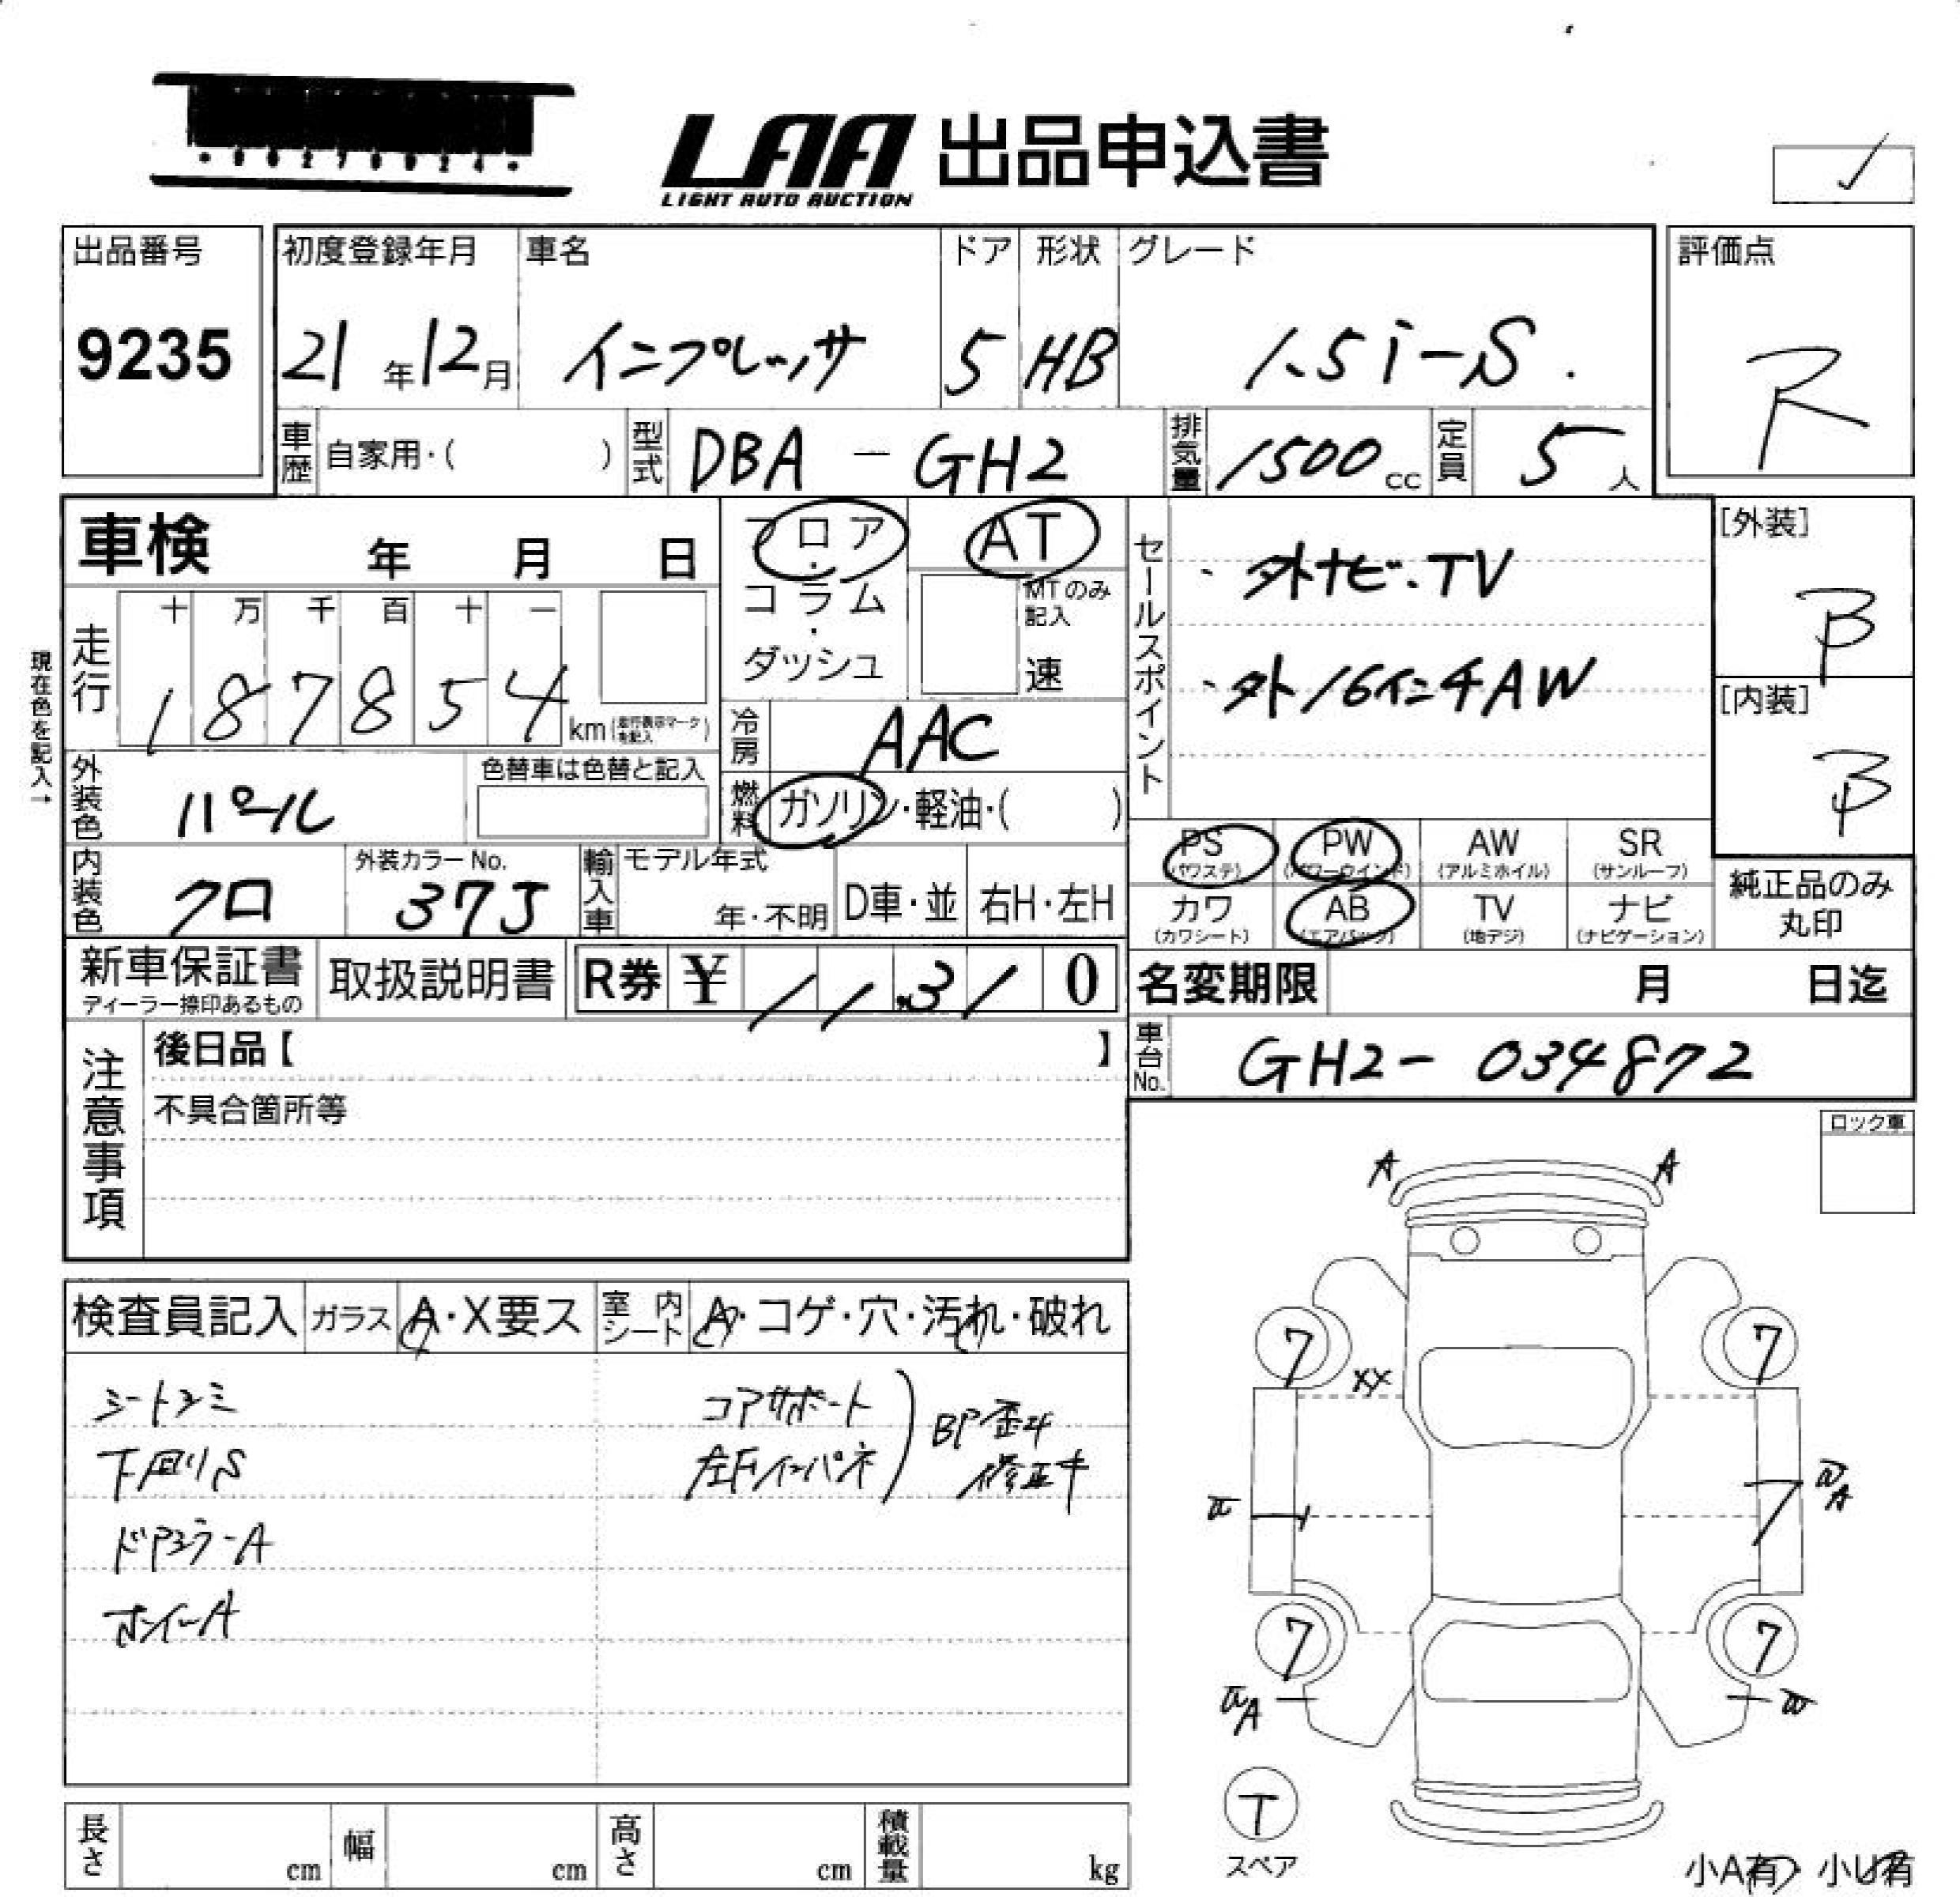 LAA 出品申込書
LIGHT AUTO AUCTION
出品番号
9235
初度登録年月 車名 ドア 形状 グレード
21年12月 インプレッサ 5 HB 1.5i-S.
評価点
R
車歴 自家用・( ) 型式 DBA-GH2 排気量 1500cc 定員 5人
車検 年 月 日
フロア・コラム・ダッシュ
AT
MTのみ記入
速
セールスポイント
・外ナビ・TV
・外16インチAW
[外装]
B
[内装]
B
現在色を記入→
走行 十万千百十一
187854 km(走行表示マークを記入)
冷房 AAC
外装色 パール
色替車は色替と記入
燃料 ガソリン・軽油・( )
内装色 クロ
外装カラーNo.
37J
輸入車 モデル年式
年・不明 D車・並 右H・左H
PS AB PW AW SR
(パワステ) (パワーウインド) (アルミホイル) (サンルーフ)
カワ AB TV ナビ
(カワシート) (エアバッグ) (地デジ) (ナビゲーション)
純正品のみ
丸印
新車保証書
ディーラー捺印あるもの
取扱説明書
R券 ¥ 11.310
名変期限 月 日迄
車台No. GH2-034872
注意事項
後日品【 】
不具合箇所等
ロック車
A A
検査員記入 ガラス A・X要ス 室内シート A・コゲ・穴・汚れ・破れ
シートシミ
下回りS
ドアミラーA
ホイールA
コアサポート
左Fインパネ
BP歪み
修正キ
7 7
XX
7 7
A
A
T
スペア
長さ cm 幅 cm 高さ cm 積載量 kg
小A有・小U有